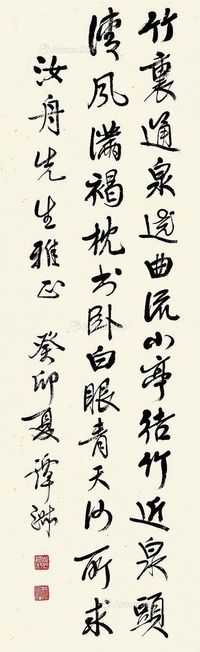 竹裏通泉遶曲流小亭結竹近泉頭
清風滿褐枕書卧白眼青天何所求
汝舟先生雅正 癸卯夏 譚